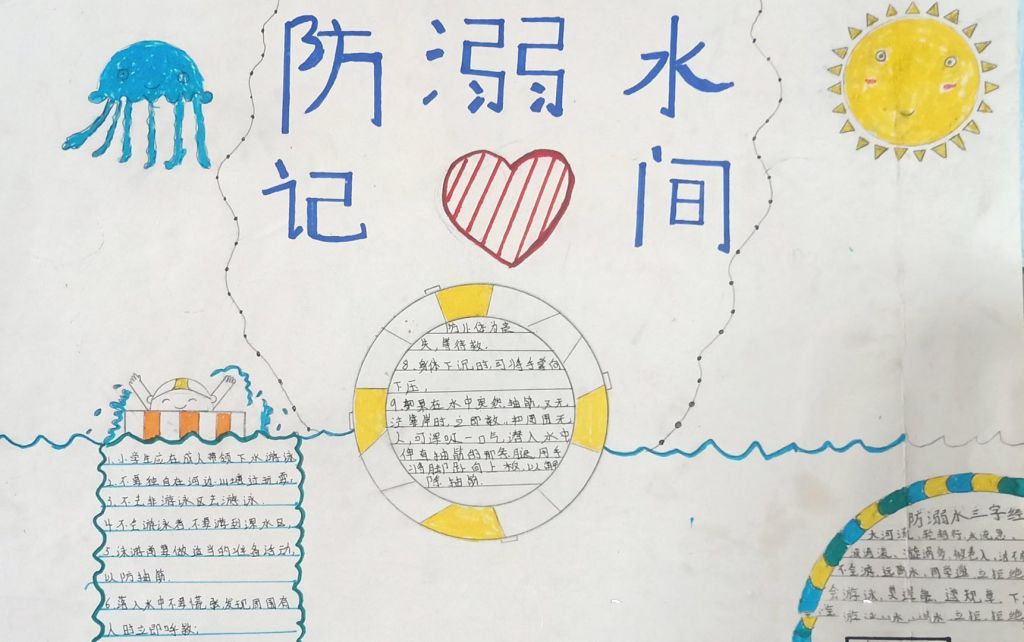 防溺水
记间
1.小学生应在成人带领下水游泳
2.不要独自在河边、山塘边玩耍,
3.不去非游泳区去游泳
4.不会游泳者,不要游到深水区,
5.泳游前要做适当的准备活动,
以防抽筋.
6.落入水中不要慌张发现周围有
人时立即呼救;
防止体力丧
失,等待救.
8.身体下沉时,可将手掌向
下压.
9.如果在水中突然抽筋,又无
法靠岸时,立即救,如周围无
人,可深吸一口气潜入水中
伸直抽筋的那条腿,用手
将脚趾向上板,以解
除抽筋.
防溺水三字经
大河流,
漩涡多,被卷入,
不会游,远离水,同学邀,立拒绝
会游泳,莫逞能,
游
立拒绝